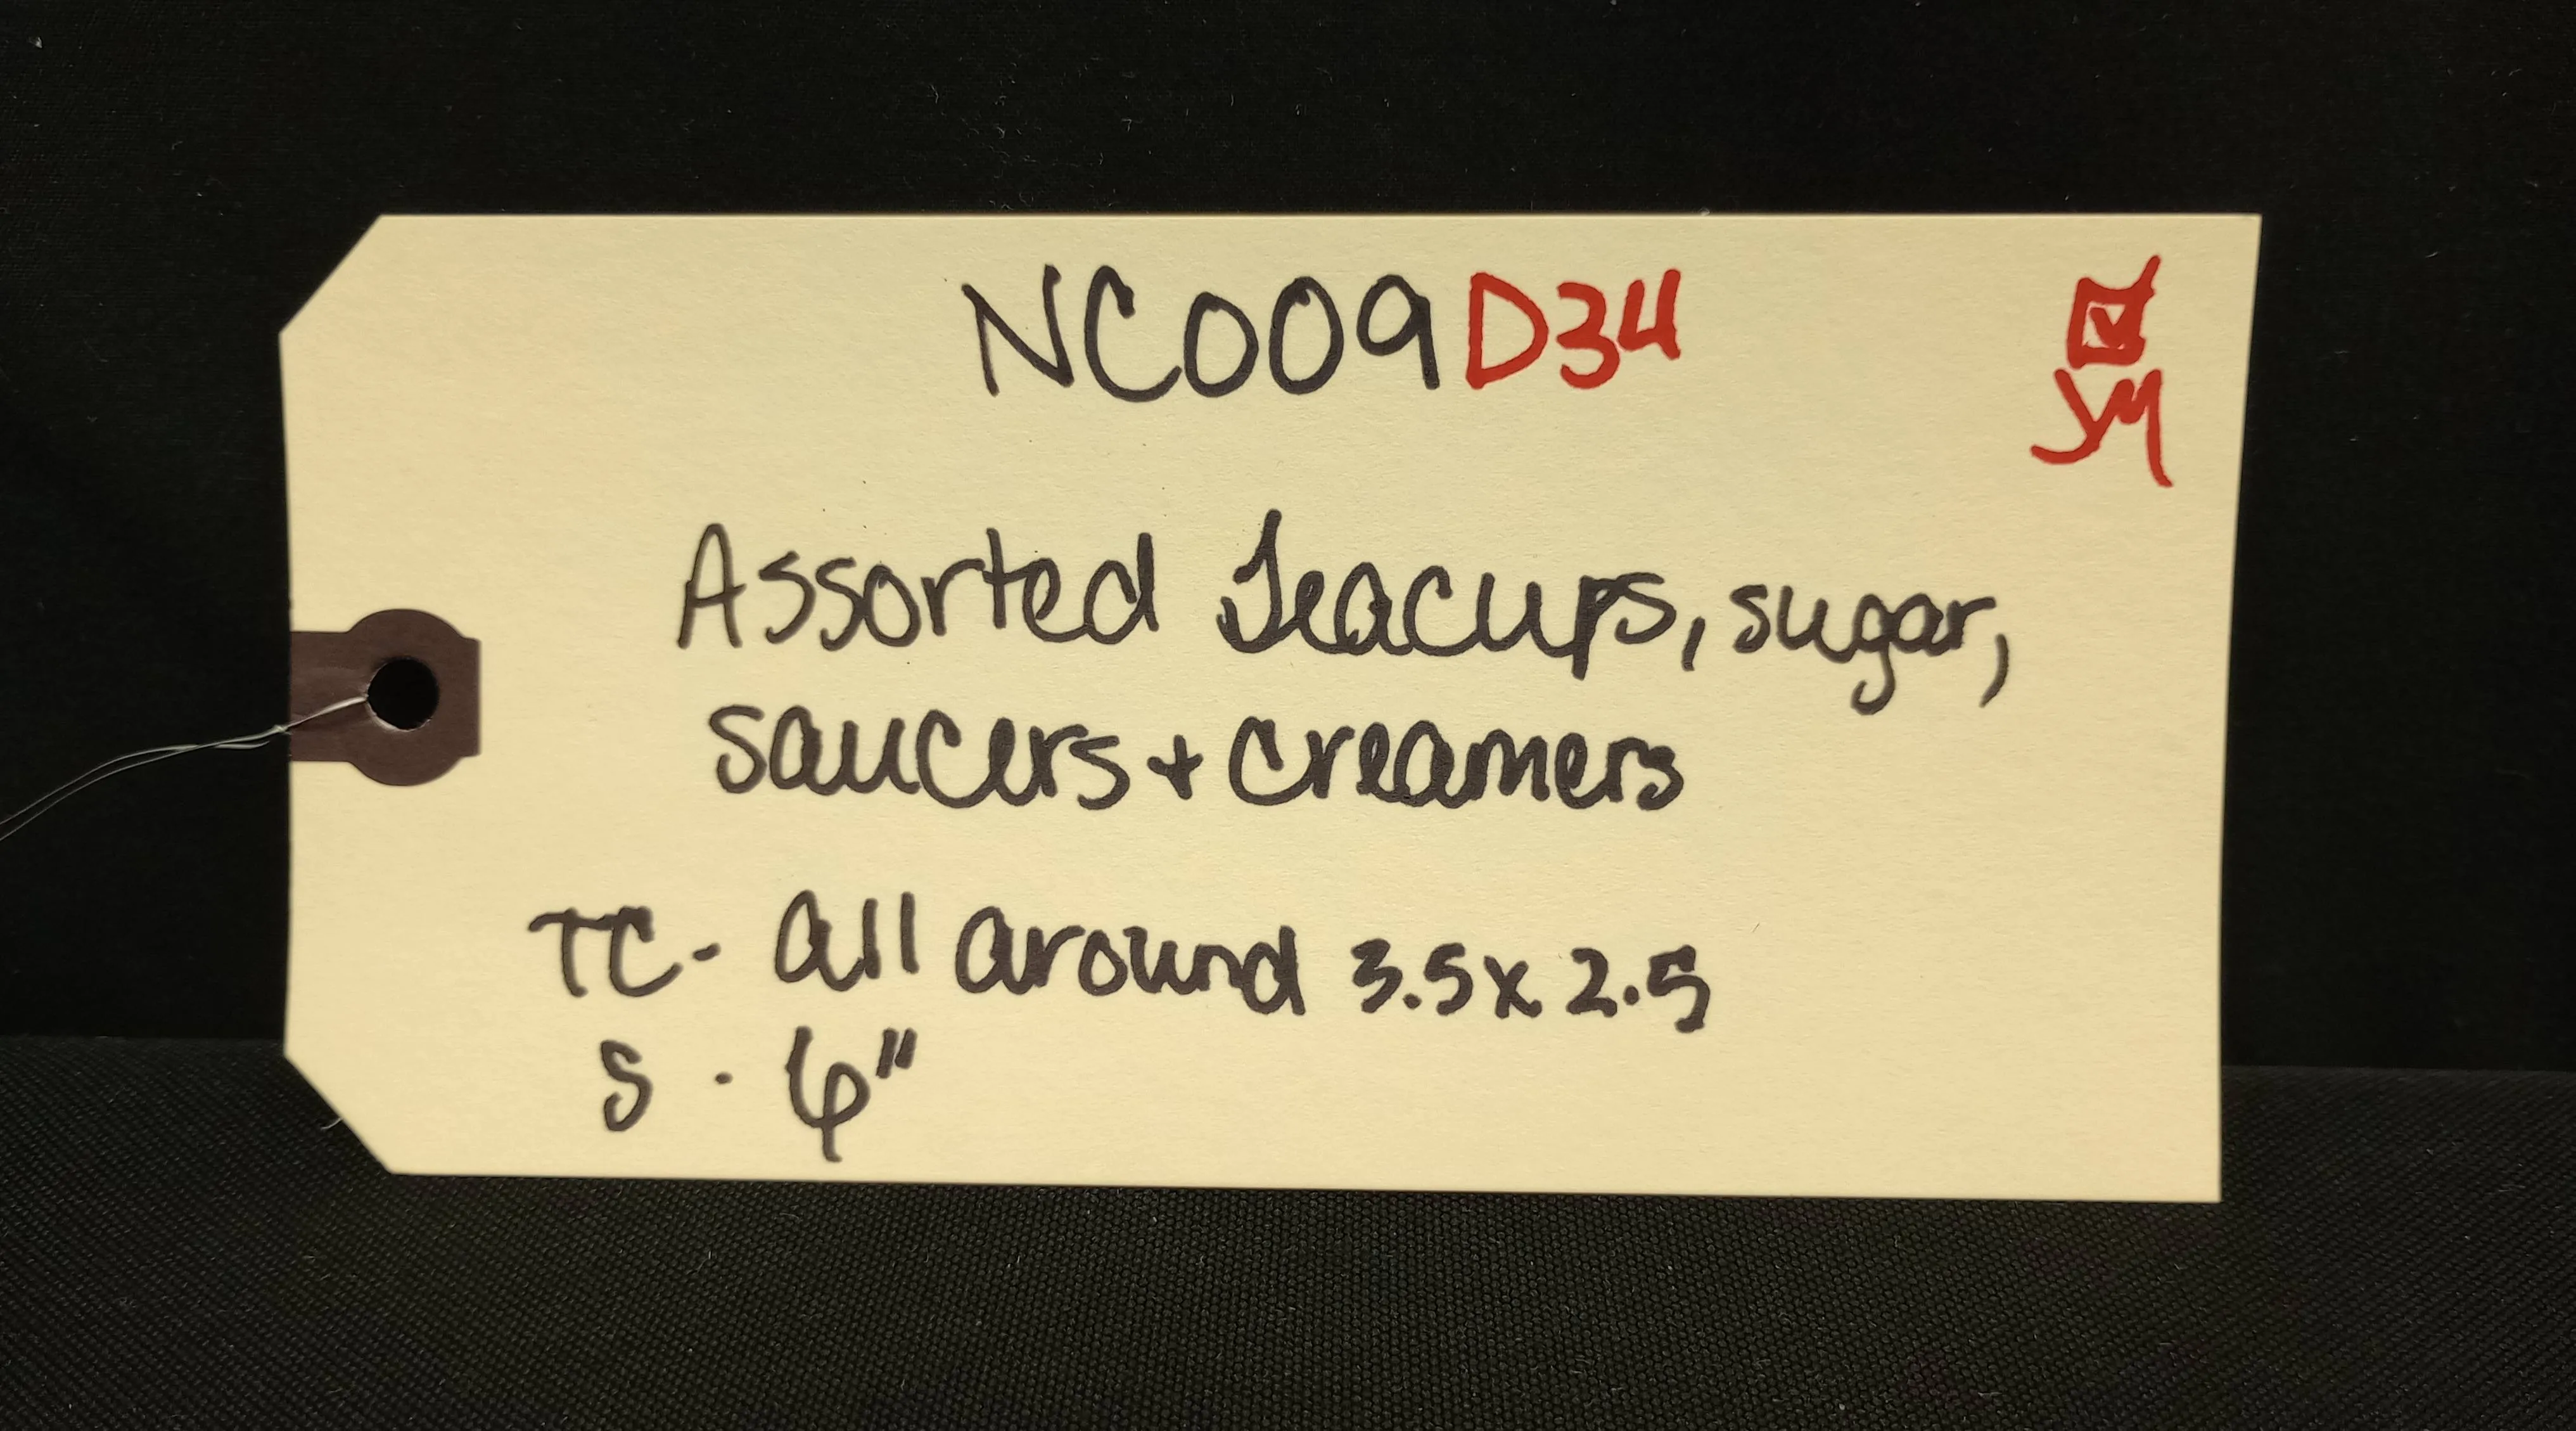 NC009D34
☑
YM
Assorted Teacups, sugar,
saucers + creamers
TC - All around 3.5 x 2.5
S - 6"